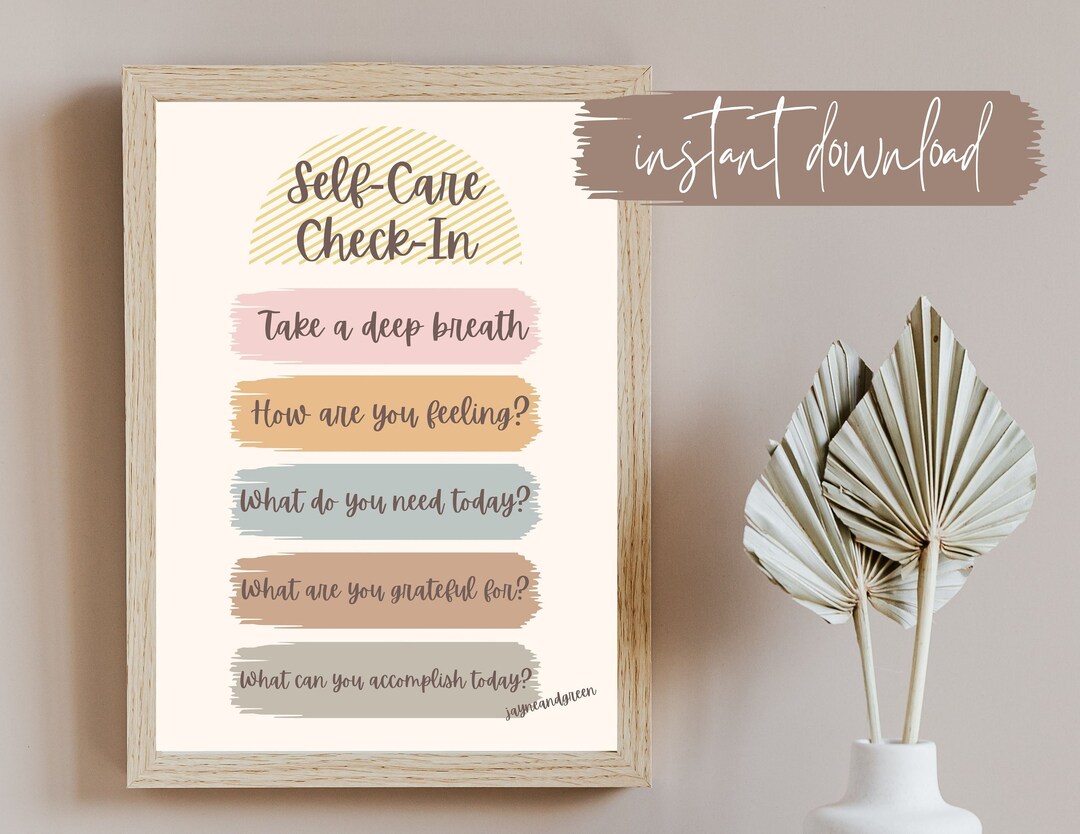 Self-Care
Check-In
instant download
Take a deep breath
How are you feeling?
What do you need today?
What are you grateful for?
What can you accomplish today?
jayneandgreen